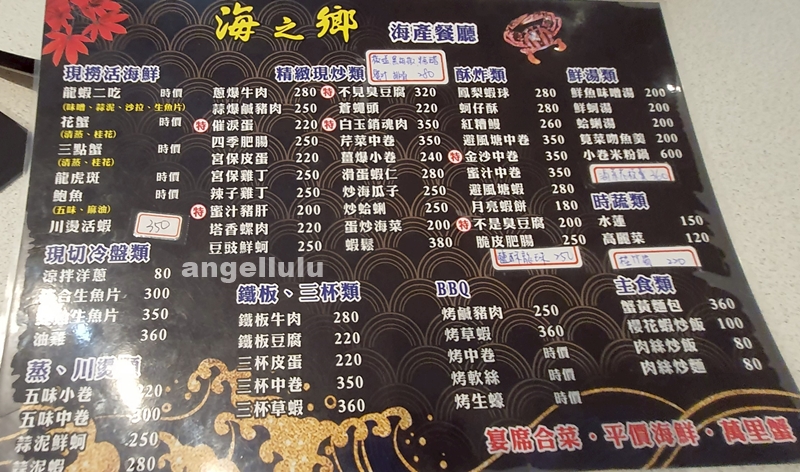 海之鄉 海產餐廳
現撈活海鮮
龍蝦二吃 時價
(味噌、蒜泥、沙拉、生魚片)
花蟹 時價
(清蒸、桂花)
三點蟹 時價
(清蒸、桂花)
龍虎斑 時價
鮑魚 時價
(五味、麻油)
川燙活蝦 350
現切冷盤類
涼拌洋蔥 80
合生魚片 300
生魚片 350
油雞 360
蒸、川燙類
五味小卷 220
五味中卷 300
蒜泥鮮蚵 250
蒜泥蝦 280
精緻現炒類
280
蔥爆牛肉 280
蒜爆鹹豬肉 250
特 催淚蛋 220
四季肥腸 250
宮保皮蛋 220
宮保雞丁 250
辣子雞丁 250
特 蜜汁豬肝 200
塔香螺肉 220
豆豉鮮蚵 250
特 不見臭豆腐 320
蒼蠅頭 220
特 白玉銷魂肉 350
芹菜中卷 350
薑爆小卷 240
滑蛋蝦仁 280
炒海瓜子 250
炒蛤蜊 250
蛋炒海菜 200
蝦鬆 380
鐵板、三杯類
鐵板牛肉 280
鐵板豆腐 220
三杯皮蛋 220
三杯中卷 350
三杯草蝦 360
酥炸類
鳳梨蝦球 280
蚵仔酥 280
紅糟鰻 260
避風塘中卷 350
特 金沙中卷 350
蜜汁中卷 350
避風塘蝦 280
月亮蝦餅 180
特 不是臭豆腐 200
脆皮肥腸 250
250
BBQ
烤鹹豬肉 250
烤草蝦 360
烤中卷 時價
烤軟絲 時價
烤生蠔 時價
鮮湯類
鮮魚味噌湯 200
鮮蚵湯 200
蛤蜊湯 200
莧菜吻魚羹 200
小卷米粉鍋 600
360
時蔬類
水蓮 150
高麗菜 120
220
主食類
蟹黃麵包 360
櫻花蝦炒飯 100
肉絲炒飯 80
肉絲炒麵 80
宴席合菜・平價海鮮・萬里蟹
angellulu